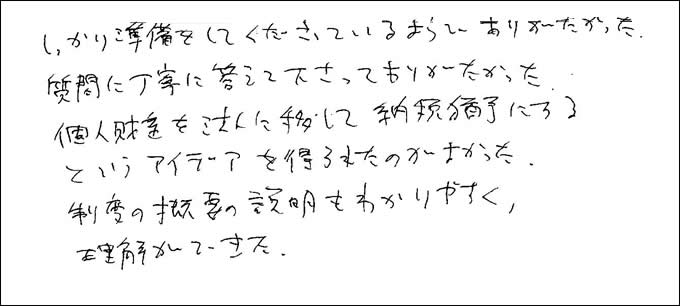 しっかり準備をしてくださっているようでありがたかった.
質問に丁寧に答えて下さってありがたかった.
個人財産を法人に移して納税猶予にする
というアイデアを得られたのがよかった.
制度の概要の説明もわかりやすく,
理解ができた.